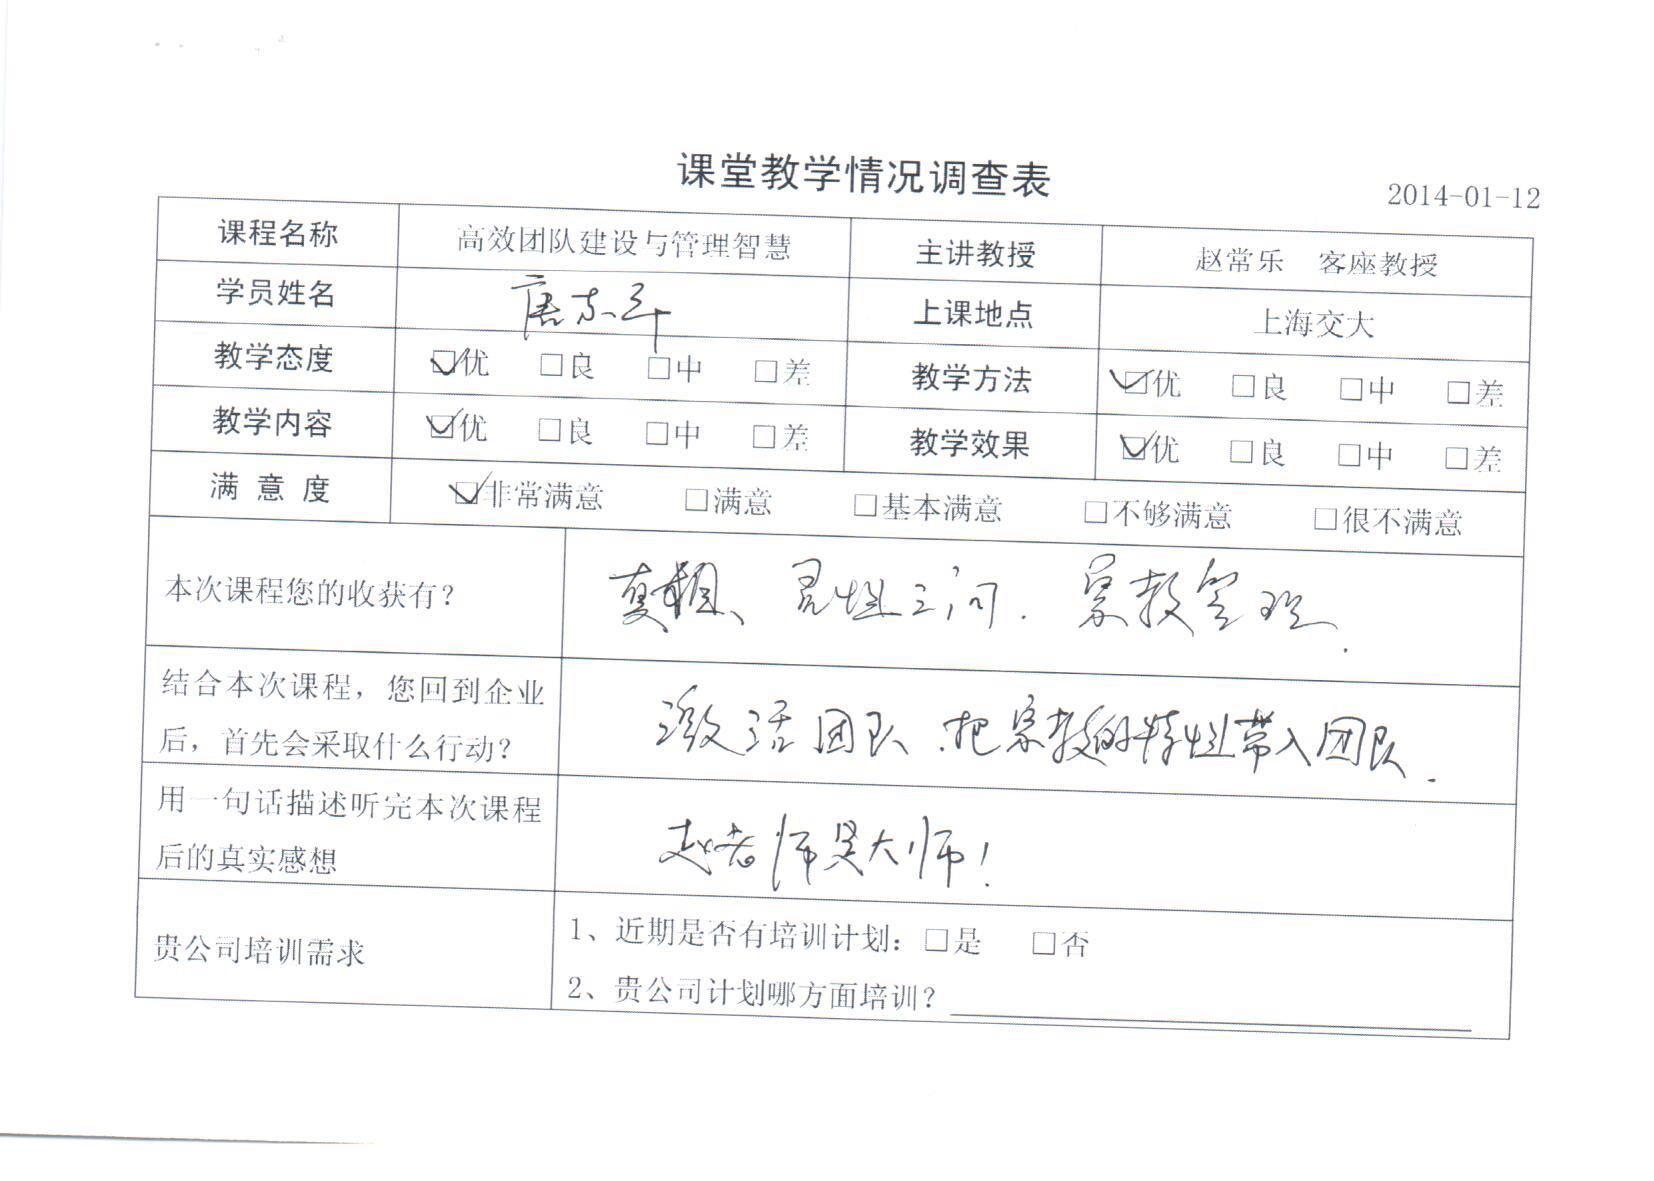 课堂教学情况调查表
2014-01-12
课程名称 高效团队建设与管理智慧 主讲教授 赵常乐 客座教授
学员姓名 唐东 上课地点 上海交大
教学态度 ☑优 □良 □中 □差 教学方法 ☑优 □良 □中 □差
教学内容 ☑优 □良 □中 □差 教学效果 ☑优 □良 □中 □差
满意度 ☑非常满意 □满意 □基本满意 □不够满意 □很不满意
本次课程您的收获有? 真相、灵性三问.宗教管理.
结合本次课程,您回到企业
后,首先会采取什么行动? 激活团队.把宗教的特性带入团队.
用一句话描述听完本次课程
后的真实感想 赵老师是大师!
贵公司培训需求
1、近期是否有培训计划: □是 □否
2、贵公司计划哪方面培训?